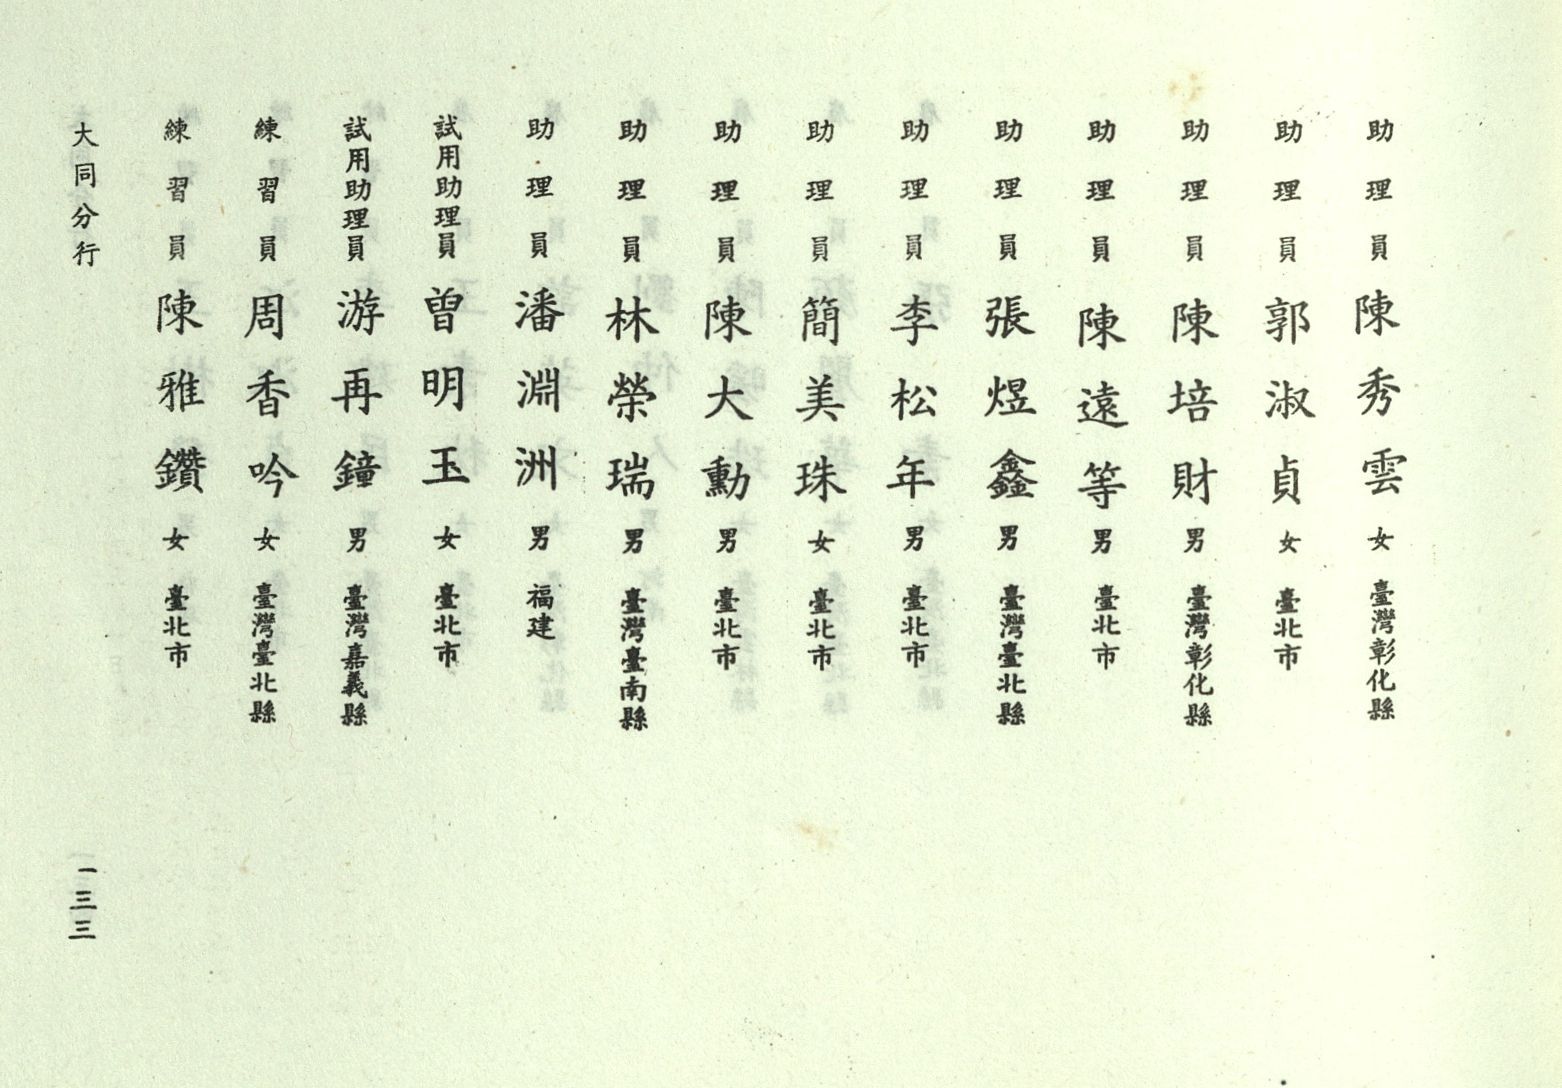 助理員 陳秀雲 女 臺灣彰化縣
助理員 郭淑貞 女 臺北市
助理員 陳培財 男 臺灣彰化縣
助理員 陳遠等 男 臺北市
助理員 張煜鑫 男 臺灣臺北縣
助理員 李松年 男 臺北市
助理員 簡美珠 女 臺北市
助理員 陳大勳 男 臺北市
助理員 林榮瑞 男 臺灣臺南縣
助理員 潘淵洲 男 福建
試用助理員 曾明玉 女 臺北市
試用助理員 游再鐘 男 臺灣嘉義縣
練習員 周香吟 女 臺灣臺北縣
練習員 陳雅鑽 女 臺北市
大同分行 一三三